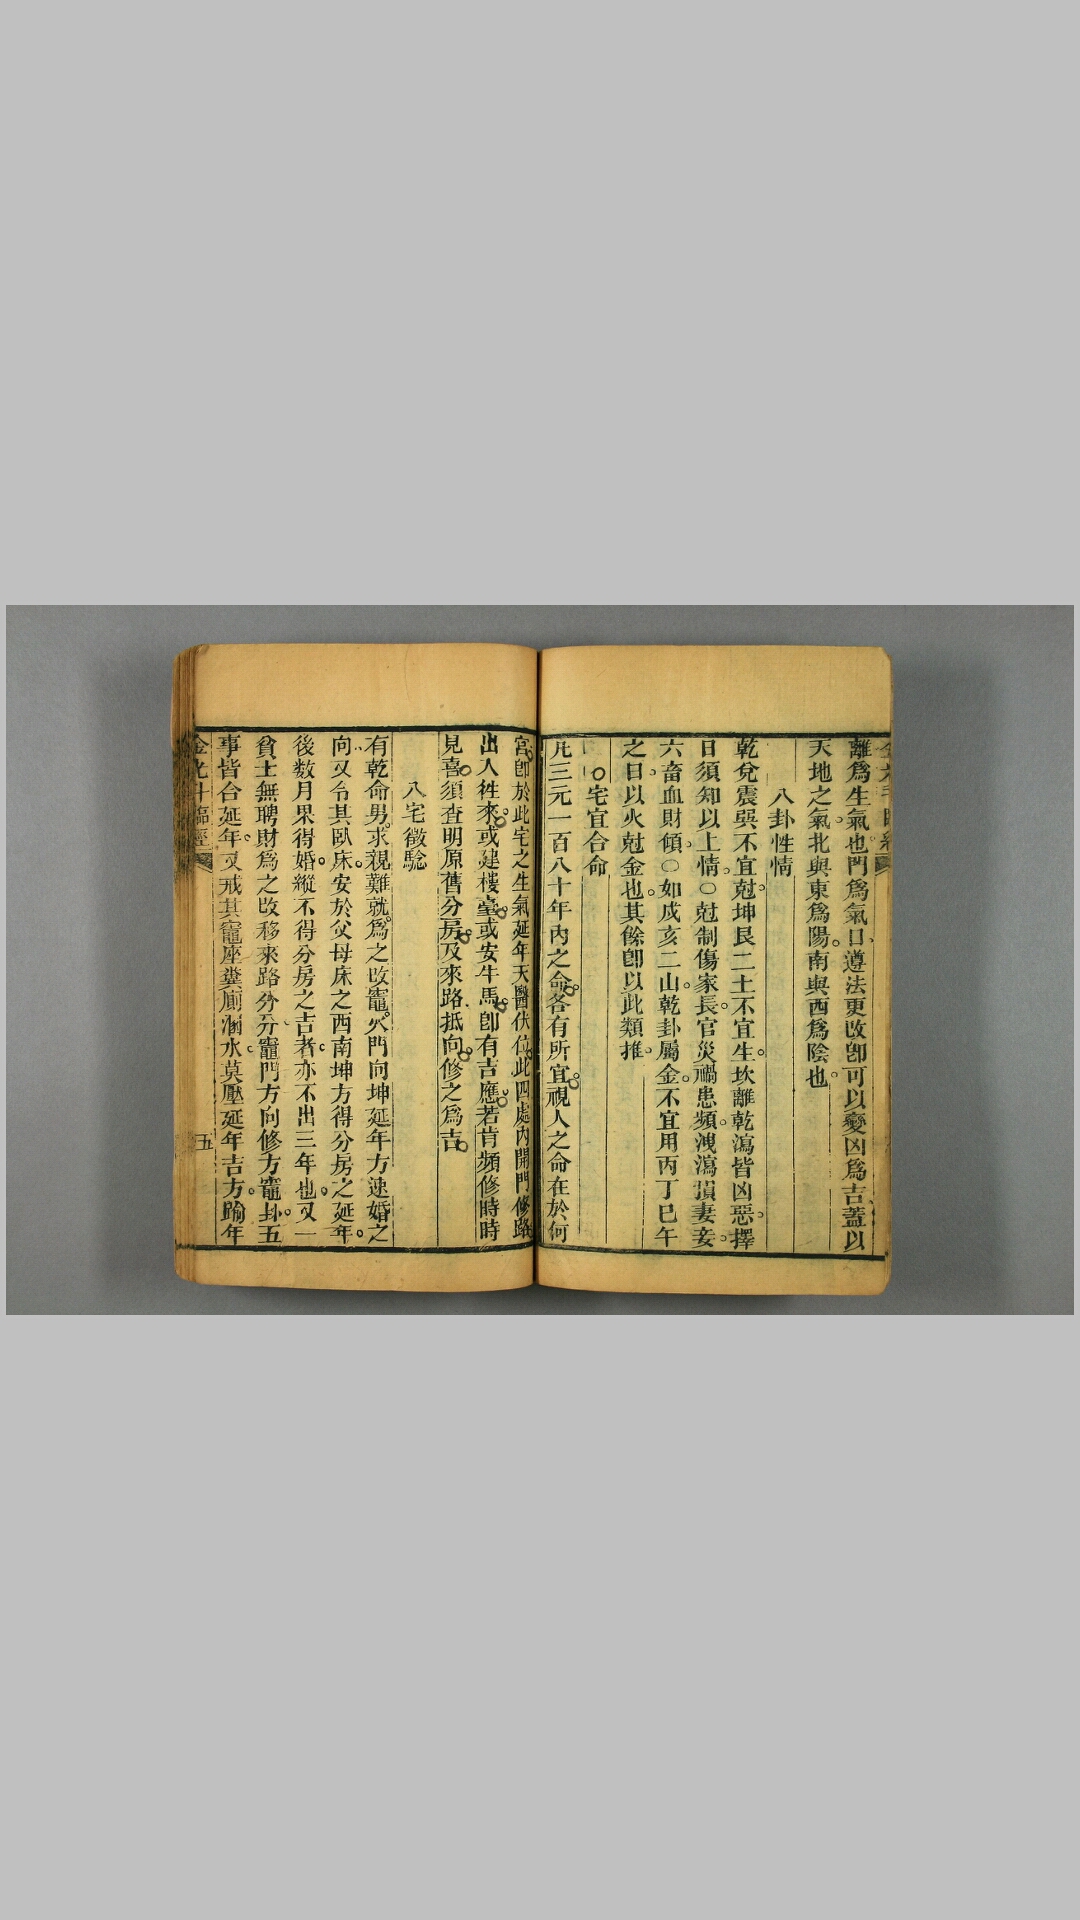 離爲生氣也門爲氣口遵法更改卽可以變凶爲吉蓋以
天地之氣北與東爲陽南與西爲陰也
八卦性情
乾兌震巽不宜尅坤艮二土不宜生坎離乾瀉皆凶惡擇
日須知以上情○尅制傷家長官災禍患頻洩瀉損妻妾
六畜血財傾○如戌亥二山乾卦屬金不宜用丙丁巳午
之日以火尅金也其餘卽以此類推
○宅宜合命
凡三元一百八十年內之命各有所宜視人之命在於何
宮卽於此宅之生氣延年天醫伏位此四處內開門修路
出入徃來或建樓臺或安牛馬卽有吉應若肯頻修時時
見喜須查明原舊分房及來路抵向修之爲吉
八宅徵驗
有乾命男求親難就爲之改竈火門向坤延年方速婚之
向又令其臥床安於父母床之西南坤方得分房之延年
後数月果得婚縱不得分房之吉者亦不出三年也又一
貧士無聘財爲之改移來路分分竈門方向修方竈卦五
事皆合延年又戒其竈座糞厠溷水莫壓延年吉方踰年
金光斗臨經
五